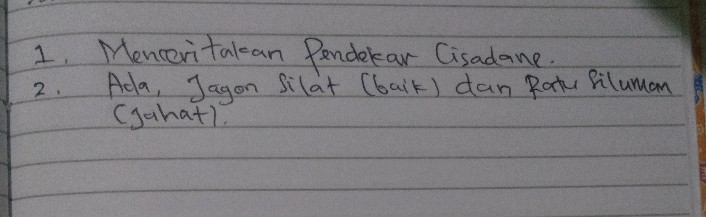 1. Menceritakan Pendekar Cisadane.
2. Ada, Jagon Silat (baik) dan Ratu Siluman
(Jahat).